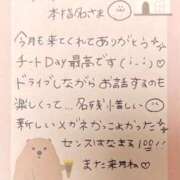 本指名さま
今月も来てくれてありがとう
チートDay最高です(;_;)♡
ドライブしながらお話するのも
楽しくって…名残惜しい〜
新しいメガネかっこよかった
センスはなまる100!!
また来月ね♡